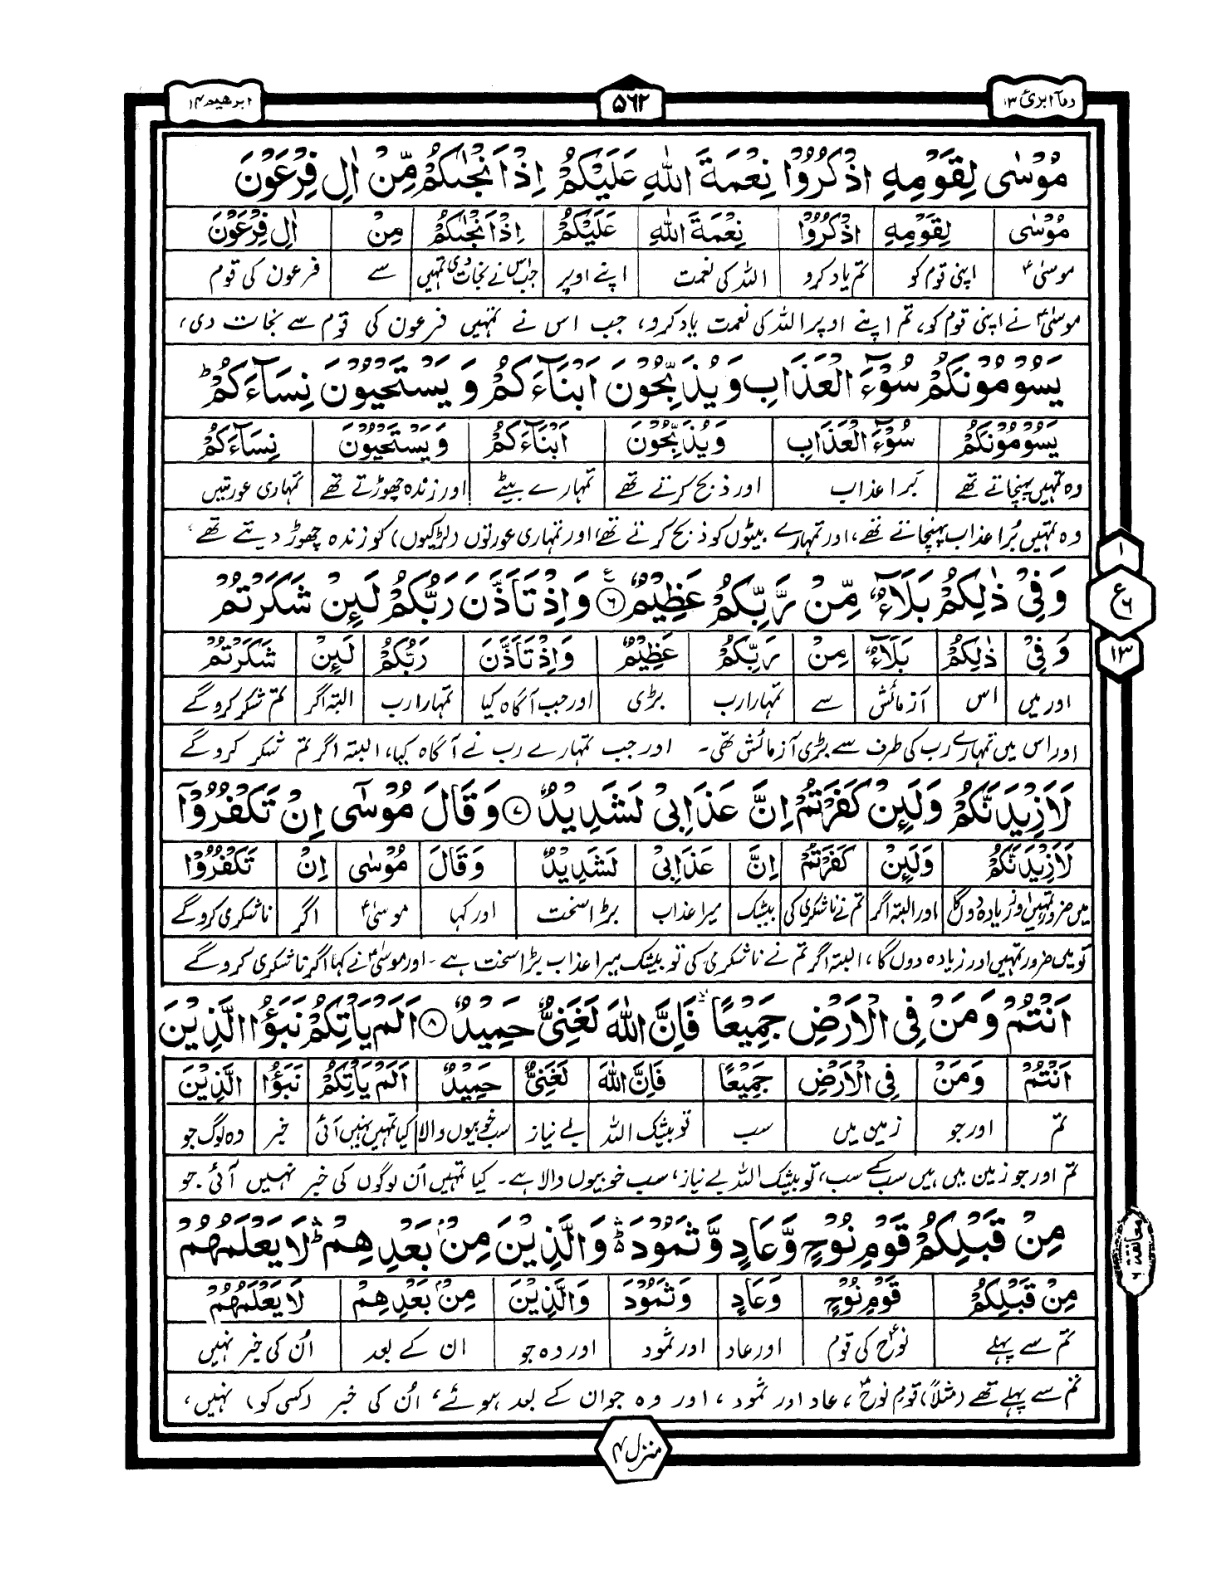 ابرٰهیم ۱۴
۵۶۲
وما ابرئ ۱۳
مُوْسٰى لِقَوْمِهِ اذْكُرُوْا نِعْمَةَ اللّٰهِ عَلَيْكُمْ اِذْ اَنْجٰىكُمْ مِّنْ اٰلِ فِرْعَوْنَ
مُوْسٰى لِقَوْمِهِ اذْكُرُوْا نِعْمَةَ اللّٰهِ عَلَيْكُمْ اِذْ اَنْجٰىكُمْ مِنْ اٰلِ فِرْعَوْنَ
موسیٰؑ اپنی قوم کو تم یاد کرو اللہ کی نعمت اپنے اوپر جب اس نے نجات دی تمہیں سے فرعون کی قوم
موسیٰؑ نے اپنی قوم کو، تم اپنے اوپر اللہ کی نعمت یاد کرو، جب اس نے تمہیں فرعون کی قوم سے نجات دی،
يَسُوْمُوْنَكُمْ سُوْٓءَ الْعَذَابِ وَيُذَبِّحُوْنَ اَبْنَآءَكُمْ وَيَسْتَحْيُوْنَ نِسَآءَكُمْ ؕ
يَسُوْمُوْنَكُمْ سُوْٓءَ الْعَذَابِ وَيُذَبِّحُوْنَ اَبْنَآءَكُمْ وَيَسْتَحْيُوْنَ نِسَآءَكُمْ
وہ تمہیں پہنچاتے تھے بُرا عذاب اور ذبح کرتے تھے تمہارے بیٹے اور زندہ چھوڑتے تھے تمہاری عورتیں
وہ تمہیں بُرا عذاب پہنچاتے تھے، اور تمہارے بیٹوں کو ذبح کرتے تھے، اور تمہاری عورتوں (لڑکیوں) کو زندہ چھوڑ دیتے تھے،
۱
ع ۶
۱۳
وَفِيْ ذٰلِكُمْ بَلَآءٌ مِّنْ رَّبِّكُمْ عَظِيْمٌ ۶ وَاِذْ تَاَذَّنَ رَبُّكُمْ لَئِنْ شَكَرْتُمْ
وَفِيْ ذٰلِكُمْ بَلَآءٌ مِنْ رَبِّكُمْ عَظِيْمٌ وَاِذْ تَاَذَّنَ رَبُّكُمْ لَئِنْ شَكَرْتُمْ
اور میں اس آزمائش سے تمہارا رب بڑی اور جب آگاہ کیا تمہارا رب البتہ اگر تم شکر کرو گے
اور اس میں تمہارے رب کی طرف سے بڑی آزمائش تھی۔ اور جب تمہارے رب نے آگاہ کیا، البتہ اگر تم شکر کرو گے
لَاَزِيْدَنَّكُمْ وَلَئِنْ كَفَرْتُمْ اِنَّ عَذَابِيْ لَشَدِيْدٌ ۷ وَقَالَ مُوْسٰٓى اِنْ تَكْفُرُوْٓا
لَاَزِيْدَنَّكُمْ وَلَئِنْ كَفَرْتُمْ اِنَّ عَذَابِيْ لَشَدِيْدٌ وَقَالَ مُوْسٰى اِنْ تَكْفُرُوْا
میں ضرور تمہیں اور زیادہ دوں گا اور البتہ اگر تم نے ناشکری کی بیشک میرا عذاب بڑا سخت اور کہا موسیٰؑ اگر ناشکری کرو گے
تو میں ضرور تمہیں اور زیادہ دوں گا، البتہ اگر تم نے ناشکری کی تو بیشک میرا عذاب بڑا سخت ہے۔ اور موسیٰؑ نے کہا اگر ناشکری کرو گے
اَنْتُمْ وَمَنْ فِي الْاَرْضِ جَمِيْعًا ۙ فَاِنَّ اللّٰهَ لَغَنِيٌّ حَمِيْدٌ ۸ اَلَمْ يَاْتِكُمْ نَبَؤُا الَّذِيْنَ
اَنْتُمْ وَمَنْ فِي الْاَرْضِ جَمِيْعًا فَاِنَّ اللّٰهَ لَغَنِيٌّ حَمِيْدٌ اَلَمْ يَاْتِكُمْ نَبَؤُا الَّذِيْنَ
تم اور جو زمین میں سب تو بیشک اللہ بے نیاز سب خوبیوں والا کیا تمہیں نہیں آئی خبر وہ لوگ جو
تم اور جو زمین میں ہیں سب کے سب، تو بیشک اللہ بے نیاز، سب خوبیوں والا ہے۔ کیا تمہیں اُن لوگوں کی خبر نہیں آئی جو
مِنْ قَبْلِكُمْ قَوْمِ نُوْحٍ وَّعَادٍ وَّثَمُوْدَ ۛؕ وَالَّذِيْنَ مِنْۢ بَعْدِهِمْ ۛؕ لَا يَعْلَمُهُمْ
معانقة ۶
مِنْ قَبْلِكُمْ قَوْمِ نُوْحٍ وَعَادٍ وَثَمُوْدَ وَالَّذِيْنَ مِنْۢ بَعْدِهِمْ لَا يَعْلَمُهُمْ
تم سے پہلے نوحؑ کی قوم اور عاد اور ثمود اور وہ جو ان کے بعد اُن کی خبر نہیں
تم سے پہلے تھے (مثلاً) قومِ نوحؑ، عاد اور ثمود، اور وہ جو ان کے بعد ہوئے، اُن کی خبر (کسی کو) نہیں،
منزل ۳